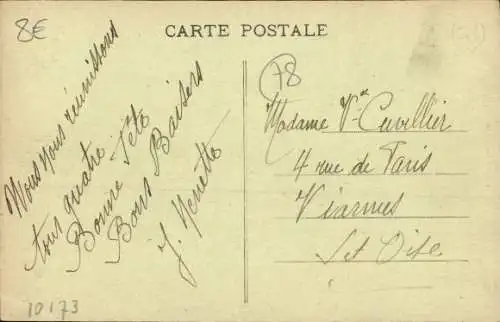 8€
CARTE POSTALE
78
Nous nous réunissons
tous quatre
Bonne Fête
Bons Baisers
J.
Madame Vve Cuvellier
4 rue de Paris
Viarmes
Set Oise
10173